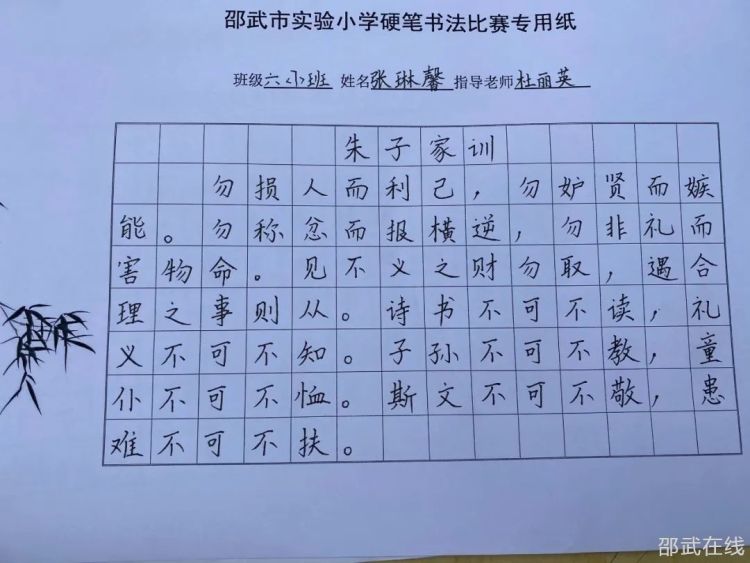 邵武市实验小学硬笔书法比赛专用纸
班级六(小)班 姓名张琳馨 指导老师杜丽英
朱子家训
勿损人而利己，勿妒贤而嫉
能。勿称忿而报横逆，勿非礼而
害物命。见不义之财勿取，遇合
理之事则从。诗书不可不读，礼
义不可不知。子孙不可不教，童
仆不可不恤。斯文不可不敬，患
难不可不扶。
邵武在线